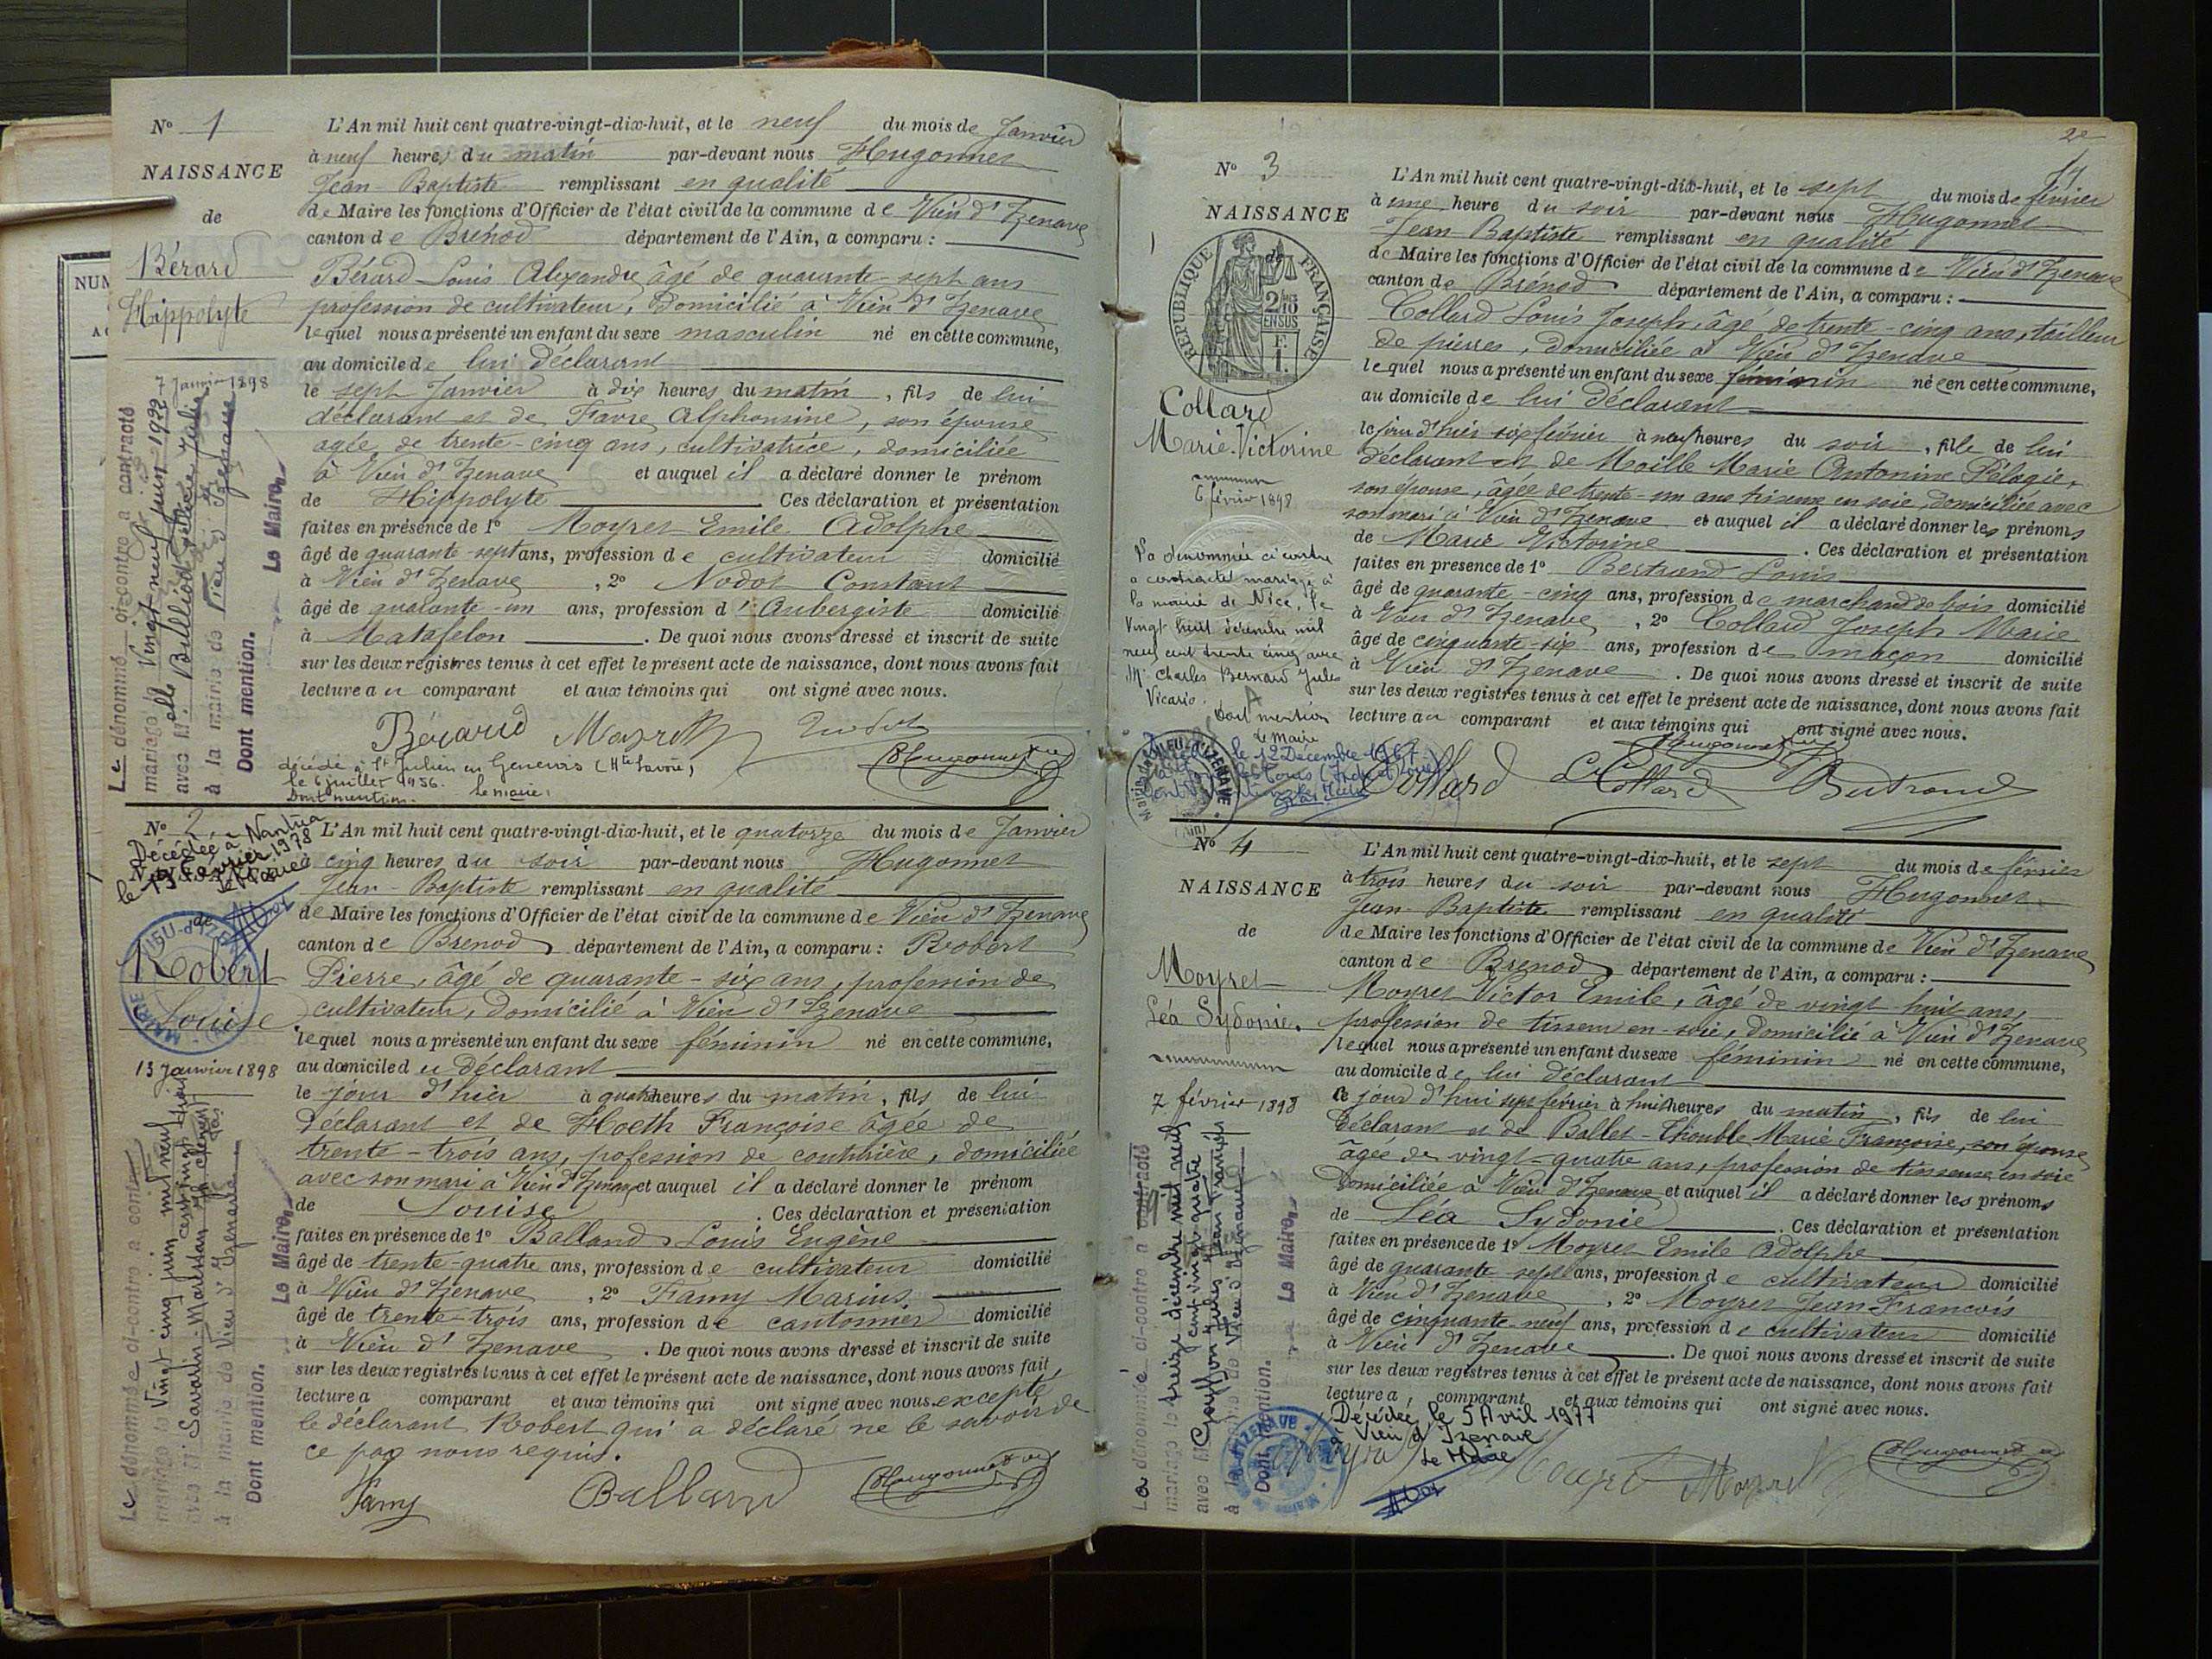 N° 1
NAISSANCE
de
Bérard
Hippolyte
7 Janvier 1898
Le dénommé ci-contre a contracté
mariage le Vingt neuf juin 1922
avec Melle Bulliod
à la mairie de Vieu d'Izenave
Dont mention. Le Maire,
L'An mil huit cent quatre-vingt-dix-huit, et le neuf du mois de Janvier
à neuf heures du matin par-devant nous Hugonnet
Jean-Baptiste remplissant en qualité
de Maire les fonctions d'Officier de l'état civil de la commune de Vieu d'Izenave
canton de Brénod département de l'Ain, a comparu :
Bérard Louis Alexandre âgé de quarante-sept ans
profession de cultivateur, domicilié à Vieu d'Izenave
lequel nous a présenté un enfant du sexe masculin né en cette commune,
au domicile de lui déclarant
le sept Janvier à dix heures du matin, fils de lui
déclarant et de Favre Alphonsine, son épouse
agée de trente-cinq ans, cultivatrice, domiciliée
à Vieu d'Izenave et auquel il a déclaré donner le prénom
de Hippolyte. Ces déclaration et présentation
faites en présence de 1° Moyret Emile Adolphe
âgé de quarante-sept ans, profession de cultivateur domicilié
à Vieu d'Izenave, 2° Nodot Constant
âgé de quarante-un ans, profession d'Aubergiste domicilié
à Matafelon. De quoi nous avons dressé et inscrit de suite
sur les deux registres tenus à cet effet le présent acte de naissance, dont nous avons fait
lecture au comparant et aux témoins qui ont signé avec nous.
Bérard Moyret Nodot
Hugonnet
décédé à St Julien en Genevois (Hte Savoie)
le 6 juillet 1956.
Dont mention. Le maire :
N° 2
Décédée à Nantua
le 19 Février 1978
Le Maire
de
Robert
Louise
13 Janvier 1898
La dénommée ci-contre a contracté
mariage le Vingt cinq juin mil neuf cent vingt trois
avec M. Savarin-Marestan
à la mairie de Vieu d'Izenave
Dont mention. Le Maire,
L'An mil huit cent quatre-vingt-dix-huit, et le quatorze du mois de Janvier
à cinq heures du soir par-devant nous Hugonnet
Jean-Baptiste remplissant en qualité
de Maire les fonctions d'Officier de l'état civil de la commune de Vieu d'Izenave
canton de Brénod département de l'Ain, a comparu : Robert
Pierre, âgé de quarante-six ans, profession de
cultivateur, domicilié à Vieu d'Izenave
lequel nous a présenté un enfant du sexe féminin né en cette commune,
au domicile du déclarant
le jour d'hier à quatre heures du matin, fils de lui
déclarant et de Hoeth Françoise âgée de
trente-trois ans, pofession de coutu­rière, domiciliée
avec son mari à Vieu d'Izenave et auquel il a déclaré donner le prénom
de Louise. Ces déclaration et présentation
faites en présence de 1° Balland Louis Eugène
âgé de trente-quatre ans, profession de cultivateur domicilié
à Vieu d'Izenave, 2° Famy Marius.
âgé de trente-trois ans, profession de cantonnier domicilié
à Vieu d'Izenave. De quoi nous avons dressé et inscrit de suite
sur les deux registres tenus à cet effet le présent acte de naissance, dont nous avons fait
lecture a comparant et aux témoins qui ont signé avec nous excepté
le déclarant Robert qui a déclaré ne le savoir de
ce par nous requis.
Famy Balland Hugonnet
N° 3
NAISSANCE
de
RÉPUBLIQUE FRANÇAISE
2/10 EN SUS
F. 1.
Collard
Marie Victorine
6 février 1898
La dénommée ci contre
a contracté mariage à
la mairie de Nice, le
vingt huit décembre mil
neuf cent trente cinq avec
Mr Charles Bernard Jules
Vicario.
Dont mention
Le Maire
le 12 Décembre 1967
L'An mil huit cent quatre-vingt-dix-huit, et le sept du mois de février
à une heure du soir par-devant nous Hugonnet
Jean-Baptiste remplissant en qualité
de Maire les fonctions d'Officier de l'état civil de la commune de Vieu d'Izenave
canton de Brénod département de l'Ain, a comparu :
Collard Louis Joseph, âgé de trente-cinq ans, tailleur
de pierres, domicilié à Vieu d'Izenave
lequel nous a présenté un enfant du sexe féminin née en cette commune,
au domicile de lui déclarant
le jour d'hier six février à neuf heures du soir, fille de lui
déclarant et de Maille Marie Antonine Pélagie,
son épouse, âgée de trente-un ans tisseuse en soie, domiciliée avec
son mari à Vieu d'Izenave et auquel il a déclaré donner les prénoms
de Marie Victorine. Ces déclaration et présentation
faites en présence de 1° Bertrand Louis
âgé de quarante-cinq ans, profession de marchand de bois domicilié
à Vieu d'Izenave, 2° Collard Joseph Marie
âgé de cinquante-six ans, profession de maçon domicilié
à Vieu d'Izenave. De quoi nous avons dressé et inscrit de suite
sur les deux registres tenus à cet effet le présent acte de naissance, dont nous avons fait
lecture au comparant et aux témoins qui ont signé avec nous.
Hugonnet
Collard Collard Bertrand
N° 4
NAISSANCE
de
Moyret
Léa Sydonie.
7 février 1898
La dénommée ci-contre a contracté
mariage le treize décembre mil neuf cent vingt quatre
avec M. Goyffon Jules Jean François
à la mairie de Vieu d'Izenave
Dont mention. Le Maire,
L'An mil huit cent quatre-vingt-dix-huit, et le sept du mois de février
à trois heures du soir par-devant nous Hugonnet
Jean-Baptiste remplissant en qualité
de Maire les fonctions d'Officier de l'état civil de la commune de Vieu d'Izenave
canton de Brénod département de l'Ain, a comparu :
Moyret Victor Emile, âgé de vingt-huit ans,
profession de tisseur en soie, domicilié à Vieu d'Izenave
lequel nous a présenté un enfant du sexe féminin né en cette commune,
au domicile de lui déclarant
ce jour d'hui sept février à huit heures du matin, fils de lui
déclarant et de Ballet-Thouble Marie Françoise, son épouse
âgée de vingt-quatre ans, profession de tisseuse en soie
domiciliée à Vieu d'Izenave et auquel il a déclaré donner les prénoms
de Léa Sydonie. Ces déclaration et présentation
faites en présence de 1° Moyret Emile Adolphe
âgé de quarante sept ans, profession de cultivateur domicilié
à Vieu d'Izenave, 2° Moyret Jean-François
âgé de cinquante-neuf ans, profession de cultivateur domicilié
à Vieu d'Izenave. De quoi nous avons dressé et inscrit de suite
sur les deux registres tenus à cet effet le présent acte de naissance, dont nous avons fait
lecture a comparant et aux témoins qui ont signé avec nous.
Décédée le 5 Avril 1977
à Vieu d'Izenave
Le Maire
Moyret Moyret Moyret Hugonnet